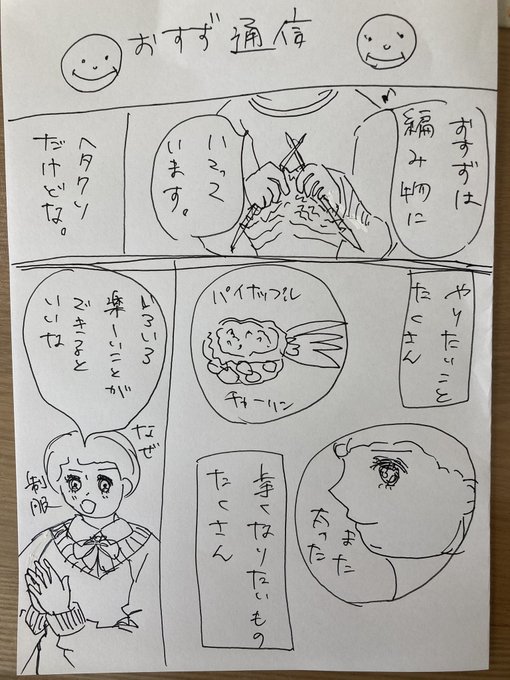 おすず通信
おすずは
編み物に
います。
ヘタクソ
だけどな。
やりたいこと
たくさん
パイナップル
チャーハン
また
太った
なりたいもの
たくさん
いろいろ
楽しいことが
できると
いいな
なぜ
制服